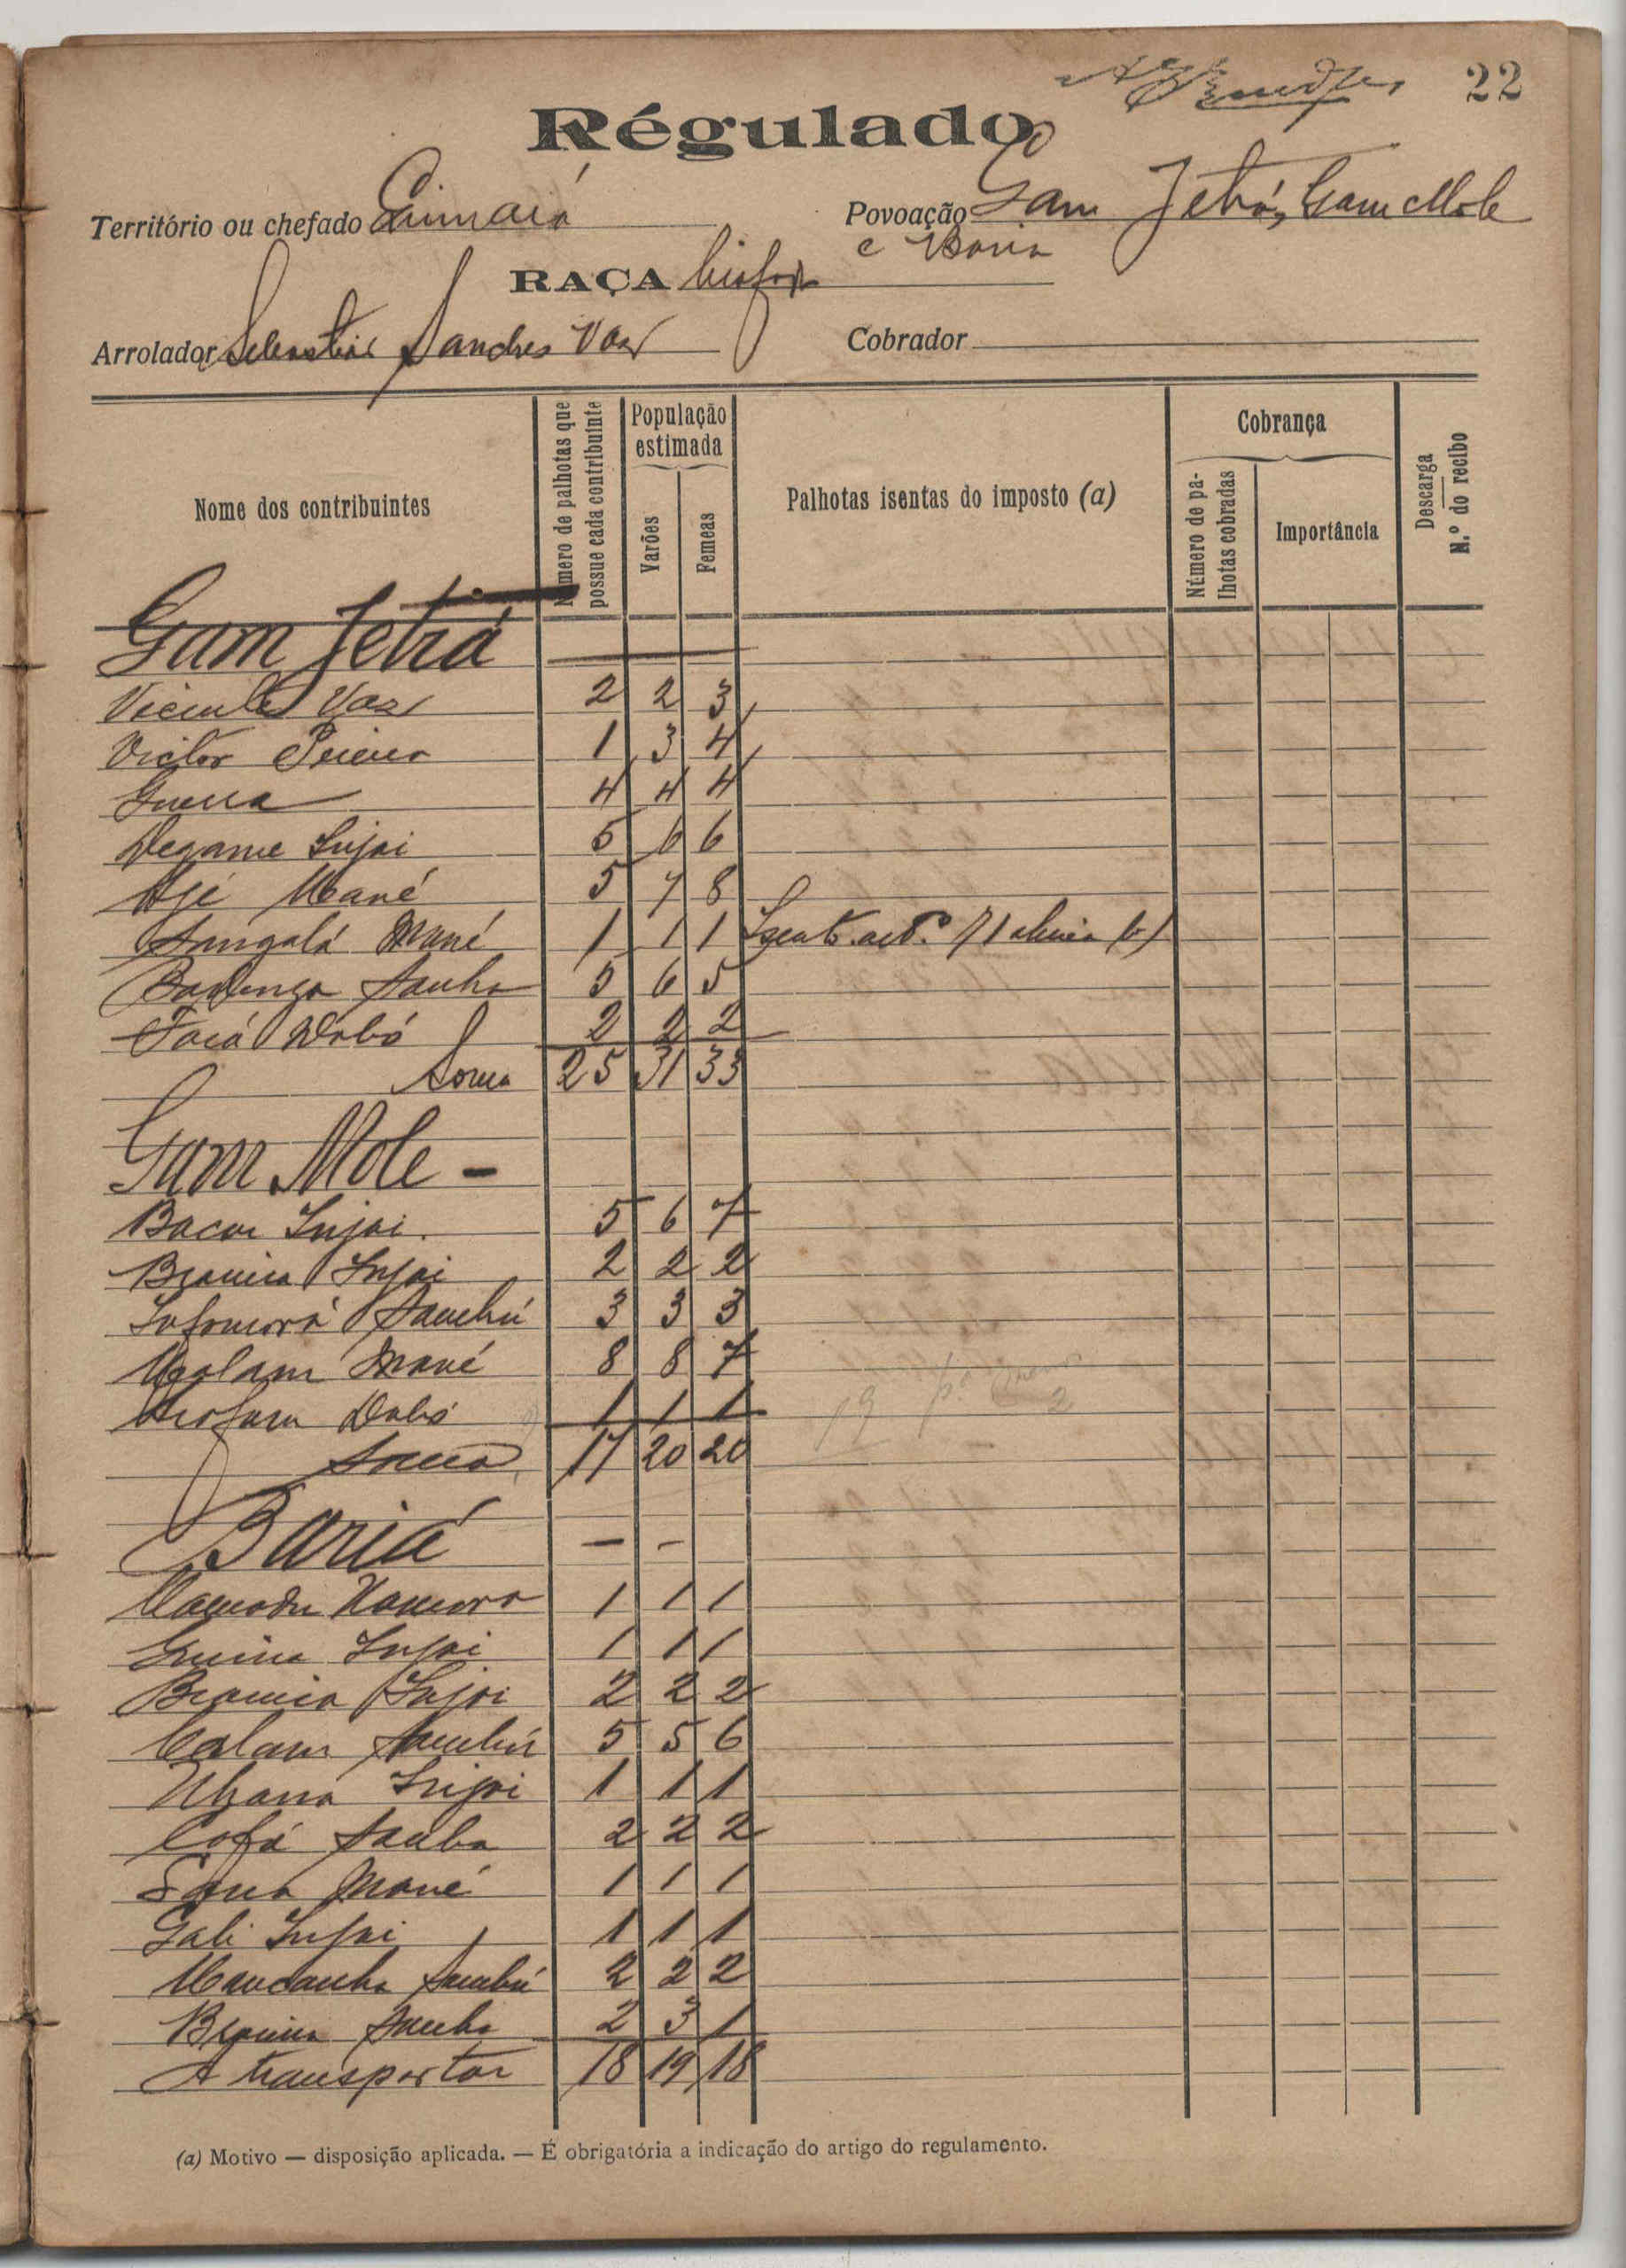 22
Régulado
Território ou chefado
Povoação Gam Jetrá, Gam Mole
e Baria
RAÇA biafada
Arrolador Sebastião Sanches Vaz
Cobrador
Nome dos contribuintes
Número de palhotas que possue cada contribuinte
População estimada
Varões
Femeas
Palhotas isentas do imposto (a)
Cobrança
Número de palhotas cobradas
Importância
Descarga
N.º do recibo
Gam Jetrá
Vicente Vaz 2 2 3
Victor Pereira 1 3 4
Guerra 4 4 4
Injai 5 6 6
Mané 5 7 8
Mané 1 1 1 Isento art.º 71 alinea b)
Sanha 5 6 5
Dabó 2 2 2
Soma 25 31 33
Gam Mole -
Bacar Injai. 5 6 7
Braima Injai 2 2 2
3 3 3
Malam Mané 8 8 7
Dabó 1 1 1
Soma 17 20 20
Bariá - -
Mamadu 1 1 1
Injai 1 1 1
Braima Injai 2 2 2
Malam 5 5 6
Injai 1 1 1
Cofá Sanha 2 2 2
Mané 1 1 1
Gali Injai 1 1 1
2 2 2
Braima Sanha 2 3 1
A transportar 18 19 18
19
2
(a) Motivo — disposição aplicada. — É obrigatória a indicação do artigo do regulamento.